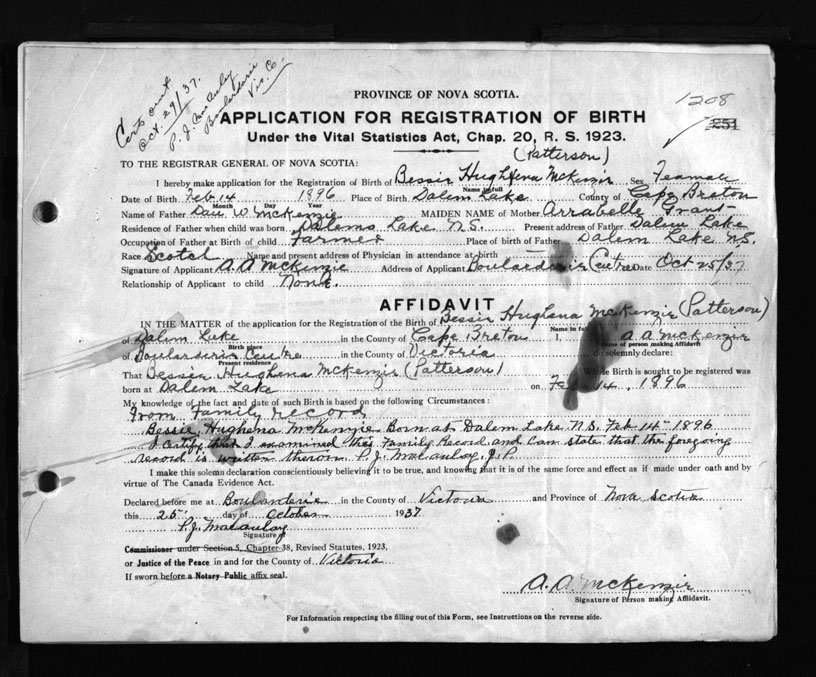 Cert out
Oct. 29/37.
P. J. Macaulay
Boulardarie
Vic. Co.
PROVINCE OF NOVA SCOTIA.
1208
APPLICATION FOR REGISTRATION OF BIRTH
251
Under the Vital Statistics Act, Chap. 20, R. S. 1923.
(Patterson)
TO THE REGISTRAR GENERAL OF NOVA SCOTIA:
I hereby make application for the Registration of Birth of Bessie Hughena McKenzie Sex Feamale
Name in full
Date of Birth Feb 14 1896 Place of Birth Dalem Lake County of Cape Breton
Month Day Year
Name of Father Dan W McKenzie MAIDEN NAME of Mother Arrabelle Grant
Residence of Father when child was born Dalems Lake N.S. Present address of Father Dalem Lake
Occupation of Father at Birth of child Farmer Place of birth of Father Dalem Lake N.S.
Race Scotch Name and present address of Physician in attendance at birth
Signature of Applicant A. A McKenzie Address of Applicant Boulardarie Centre Date Oct 25/37
Relationship of Applicant to child None.
AFFIDAVIT
IN THE MATTER of the application for the Registration of the Birth of Bessie Hughena McKenzie (Patterson)
Name in full
of Dalem Lake in the County of Cape Breton I, A A McKenzie
Birth place Name of person making Affidavit
of Boulardarie Centre in the County of Victoria do solemnly declare:
Present residence
That Bessie Hughena McKenzie (Patterson) whose Birth is sought to be registered was
born at Dalem Lake on Feb 14, 1896
My knowledge of the fact and date of such Birth is based on the following Circumstances:
From Family record
Bessie Hughena McKenzie Born at Dalem Lake N.S. Feb 14 1896
I certify that I examined this Family Record and can state that the foregoing
record is written theron. P. J. Macaulay. J. P.
I make this solemn declaration conscientiously believing it to be true, and knowing that it is of the same force and effect as if made under oath and by
virtue of The Canada Evidence Act.
Declared before me at Boulardrie in the County of Victoria and Province of Nova Scotia
this 25 day of October 1937
P. J. Macaulay
Signature of
Commissioner under Section 5, Chapter 38, Revised Statutes, 1923,
or Justice of the Peace in and for the County of Victoria
If sworn before a Notary Public affix seal.
A. A. McKenzie
Signature of Person making Affidavit.
For Information respecting the filling out of this Form, see Instructions on the reverse side.